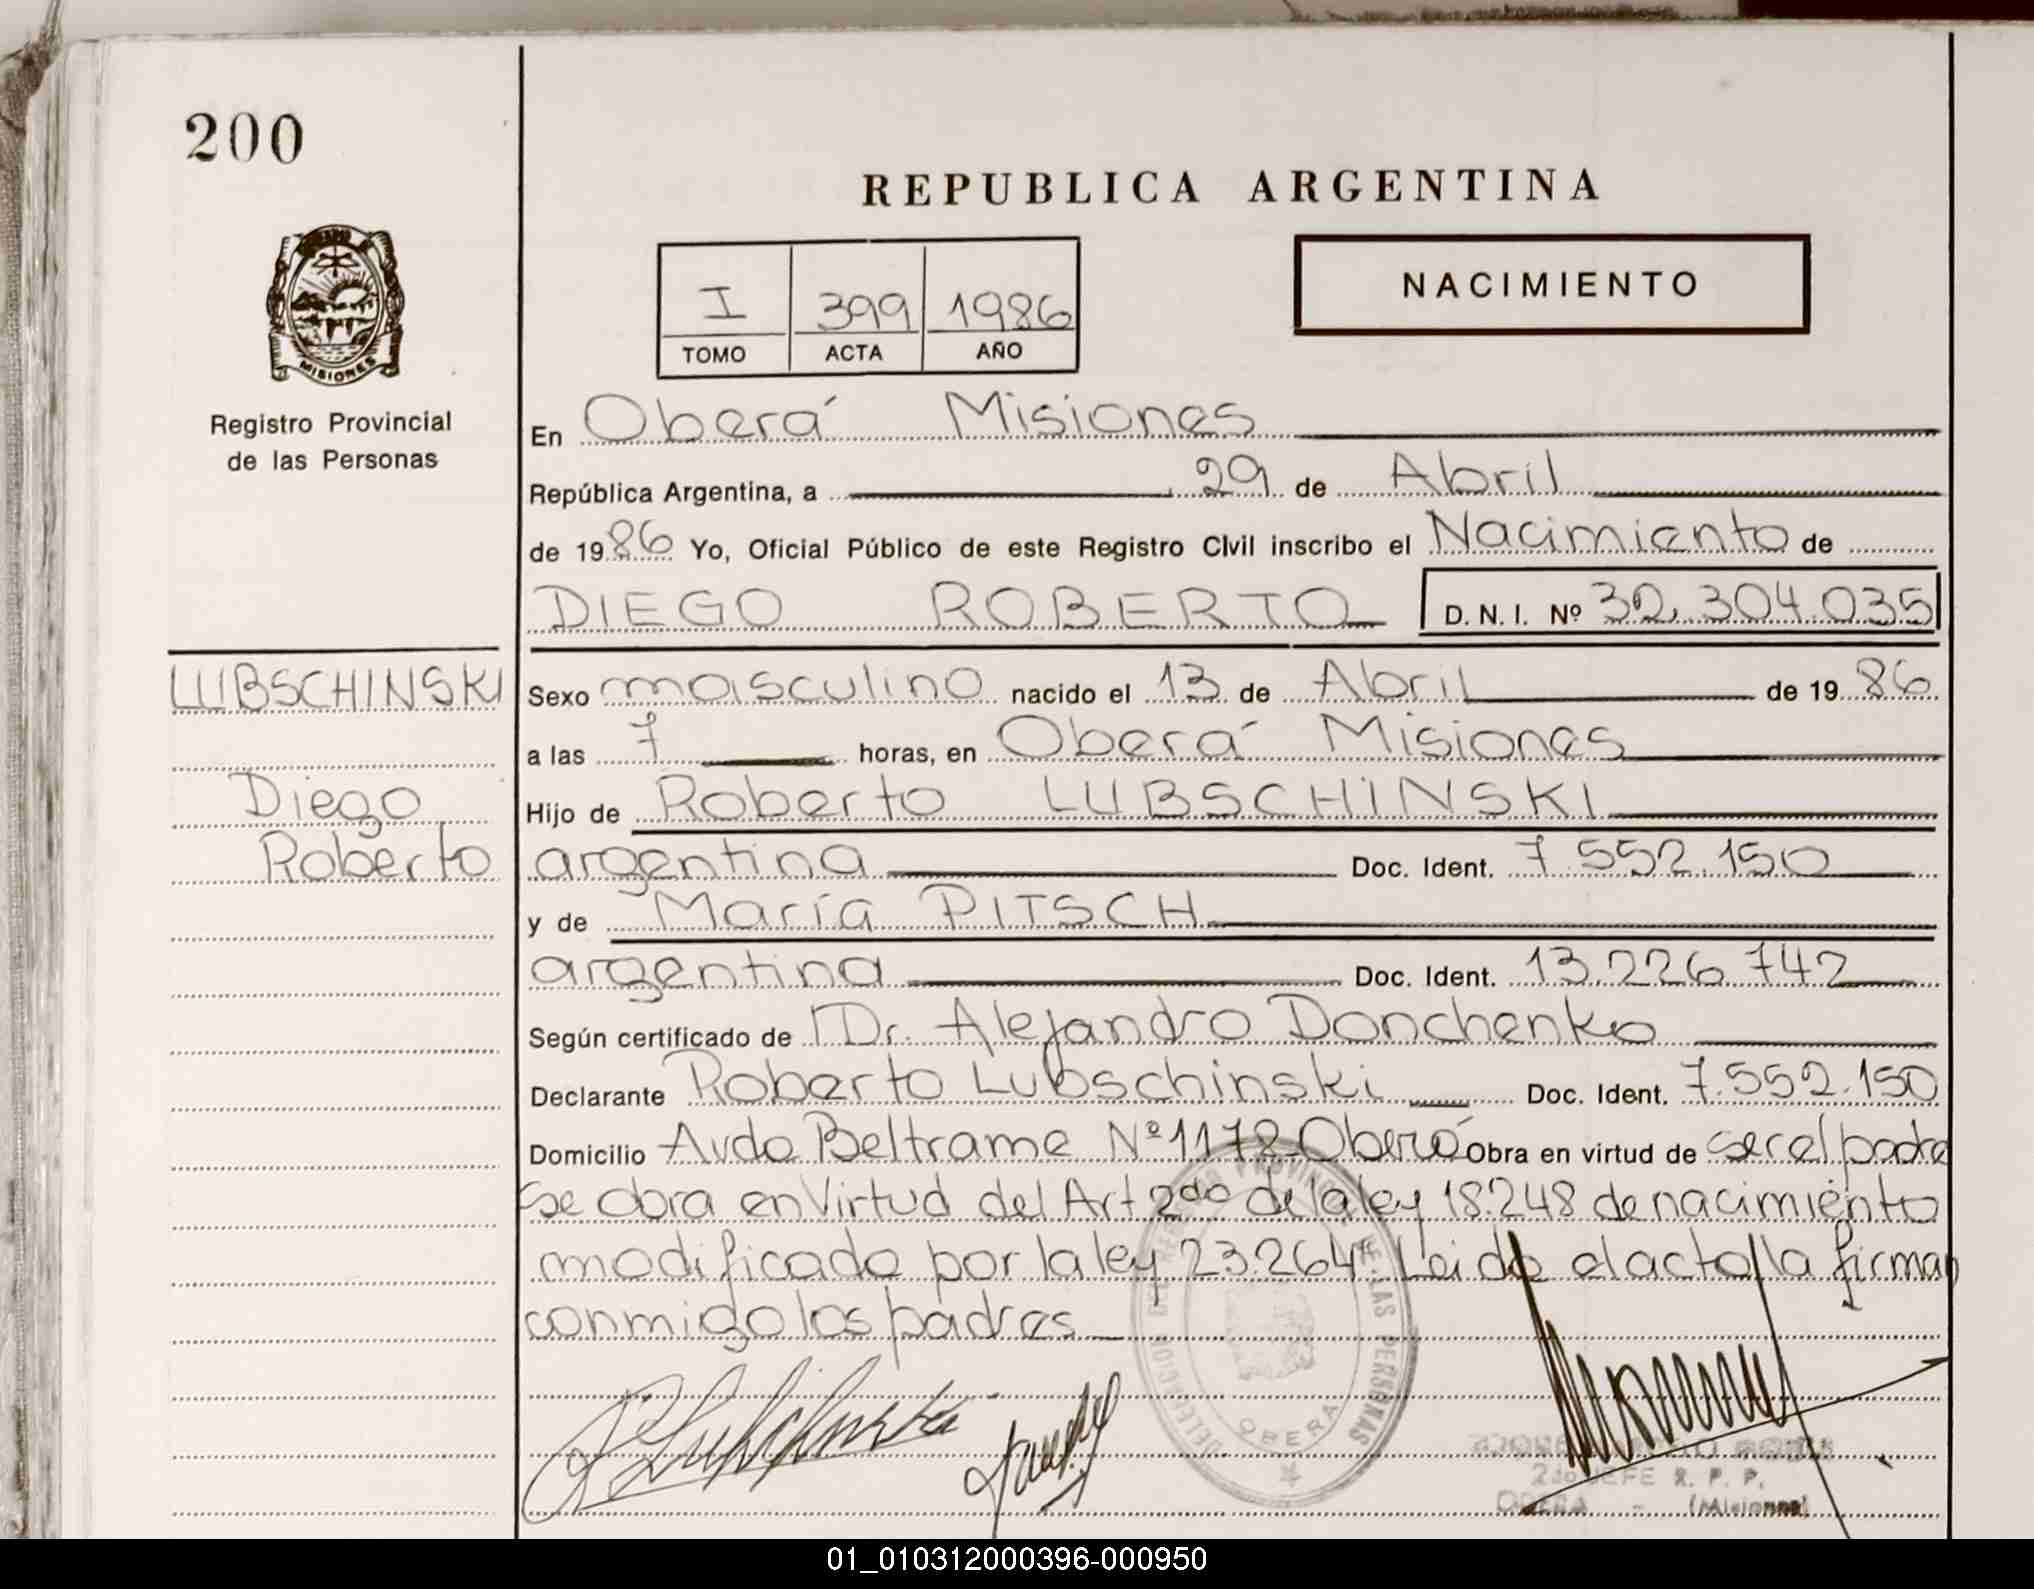 200
REPUBLICA ARGENTINA
I 399 1986
TOMO ACTA AÑO
NACIMIENTO
MISIONES
Registro Provincial
de las Personas
En Oberá Misiones
República Argentina, a 29 de Abril
de 1986 Yo, Oficial Público de este Registro Civil inscribo el Nacimiento de
DIEGO ROBERTO D. N. I. Nº 32.304.035
LUBSCHINSKI
Diego
Roberto
Sexo masculino nacido el 13 de Abril de 1986
a las 7 horas, en Oberá Misiones
Hijo de Roberto LUBSCHINSKI
argentina Doc. Ident. 7.552.150
y de María PITSCH
argentina Doc. Ident. 13.226.742
Según certificado de Dr. Alejandro Donchenko
Declarante Roberto Lubschinski Doc. Ident. 7.552.150
Domicilio Avda Beltrame Nº 1178-Oberá Obra en virtud de ser el padre
se obra en Virtud del Art 2do de la ley 18.248 de nacimiento
modificado por la ley 23.264 Leida el acta la firman
conmigo los padres
DELEGACION DEL REGISTRO PROVINCIAL DE LAS PERSONAS
OBERA
2do JEFE R. P. P.
OBERA - (Misiones)
01_010312000396-000950